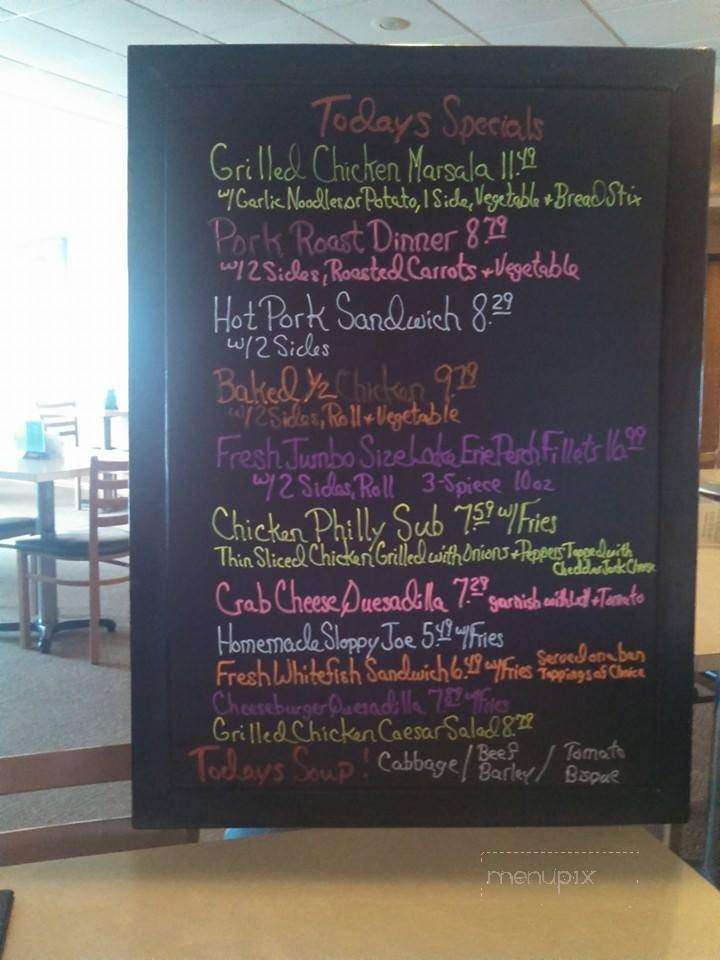 Todays Specials
Grilled Chicken Marsala 11.49
w/ Garlic Noodles or Potato, 1 Side, Vegetable + Bread Stix
Pork Roast Dinner 8.79
w/ 2 Sides, Roasted Carrots + Vegetable
Hot Pork Sandwich 8.29
w/ 2 Sides
Baked 1/2 Chicken 9.79
w/ 2 Sides, Roll + Vegetable
Fresh Jumbo Size Lake Erie Perch Fillets 16.99
w/ 2 Sides, Roll 3-5 piece 10 oz
Chicken Philly Sub 7.59 w/ Fries
Thin Sliced Chicken Grilled with Onions + Peppers Topped with
Cheddar Jack Cheese
Crab Cheese Quesadilla 7.29 garnish with Lett + Tomato
Homemade Sloppy Joe 5.49 w/ Fries
Fresh Whitefish Sandwich 6.49 w/ Fries Served on a bun
Toppings of Choice
Cheeseburger Quesadilla 7.89 w/ Fries
Grilled Chicken Caesar Salad 8.79
Todays Soup! Cabbage / Beef Barley / Tomato Bisque
menupix